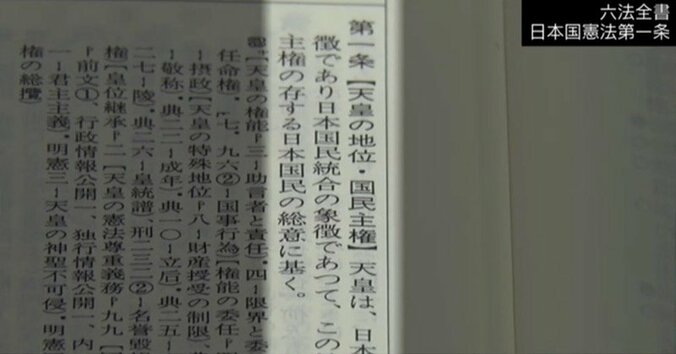 六法全書
日本国憲法第一条
第一条【天皇の地位・国民主権】天皇は、日本
徴であり日本国民統合の象徴であつて、この
主権の存する日本国民の総意に基く。
【天皇の権能P三―助言者と責任】.四―限界と委
任命権】.七,九六②―国事行為【権能の委任P
―摂政【天皇の特殊地位P八―財産授受の制限】,典
―敬称】.典二二―成年】.典一〇―立后】.典二五―
二七―陵】.典二六―皇統譜、刑二三二②―名誉毀
権【皇位継承P二【天皇の憲法尊重義務P九九【
P前文①、行政情報公開一、独行情報公開一、内
一―君主主義】.明憲三―天皇の神聖不可侵】.明憲
権の総攬